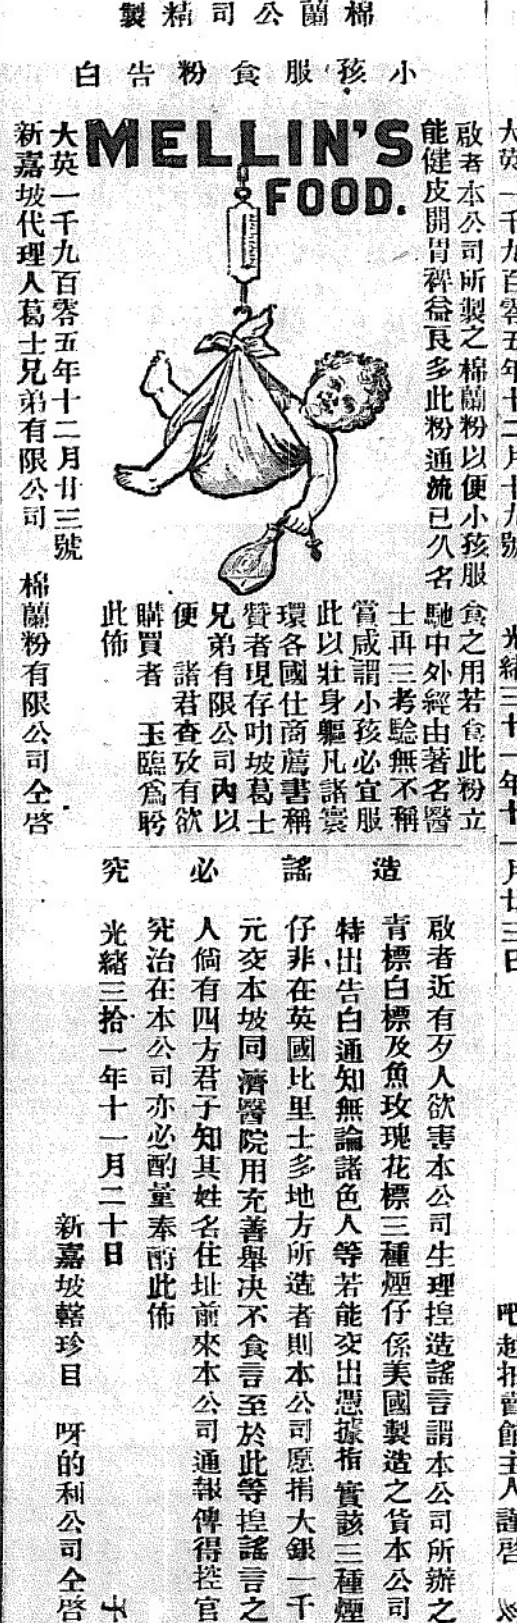 棉蘭公司精製
小孩服食粉告白
MELLIN'S
FOOD.
啟者本公司所製之棉蘭粉以便小孩服食之用若食此粉立
能健皮開胃裨益良多此粉通流已久名馳中外經由著名醫
士再三考驗無不稱
賞咸謂小孩必宜服
此以壯身軀凡諸寰
環各國仕商薦書稱
贊者現存叻坡葛士
兄弟有限公司內以
便 諸君查攷有欲
購買者 玉臨為盼
此佈
大英一千九百零五年十二月廿三號
新嘉坡代理人葛士兄弟有限公司 棉蘭粉有限公司仝啓
造謠必究
啟者近有歹人欲害本公司生理揑造謠言謂本公司所辦之
青標白標及魚玫瑰花標三種煙仔係美國製造之貨本公司
特出告白通知無論諸色人等若能交出憑據指實該三種煙
仔非在英國比里士多地方所造者則本公司愿捐大銀一千
元交本坡同濟醫院用充善舉决不食言至於此等揑謠言之
人倘有四方君子知其姓名住址前來本公司通報俾得控官
究治在本公司亦必酌量奉酧此佈
光緒三拾一年十一月二十日
新嘉坡轄珍目 呀的利公司仝啓
大英一千九百零五年十二月十九號 光緒三十一年十一月廿三日
吧越拍賣館主人謹啓